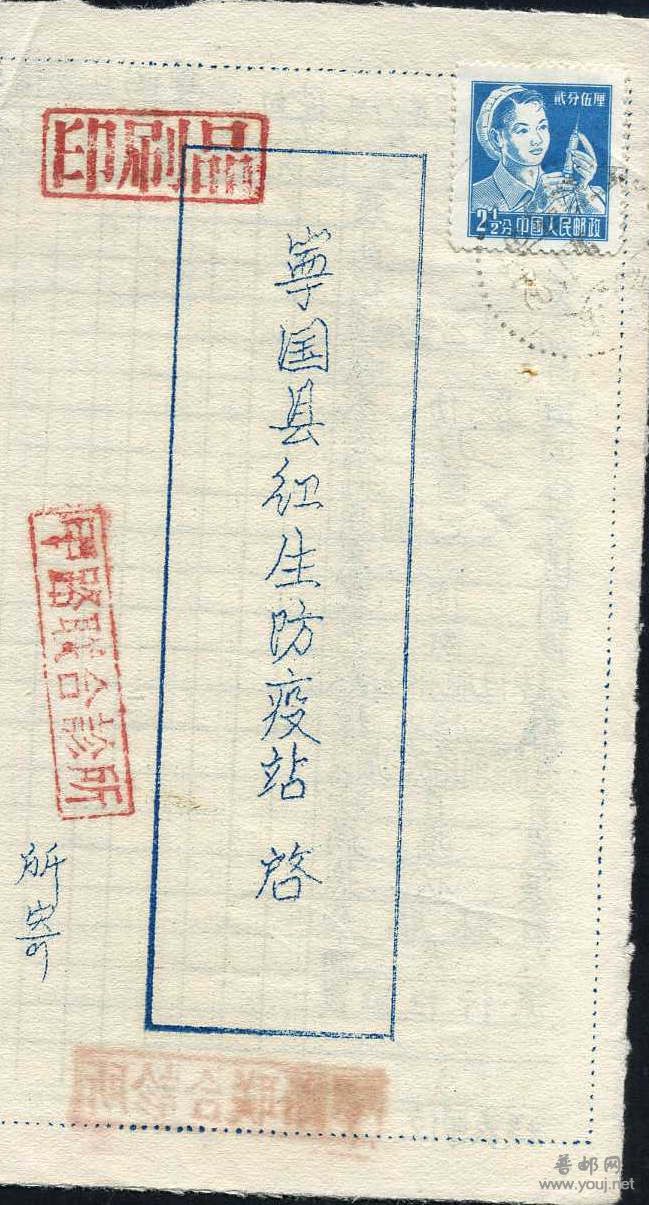 印刷品
貳分伍厘
2½分 中国人民郵政
寧国县红生防疫站 啓
甲路联合診所
所寄
路联合診所
普邮网
www.youj.net